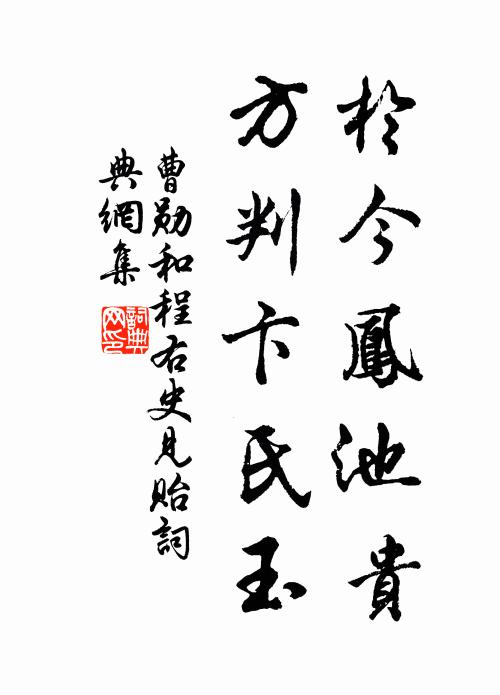 於今鳳池貴
方判卞氏玉
曹勛和程右史見貽詞
典網集
詞典网印